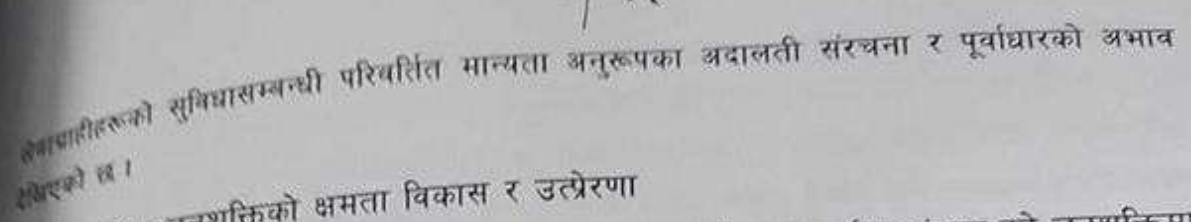 सेवाग्राहीहरूको सुविधासम्बन्धी परिवर्तित मान्यता अनुरूपका अदालती संरचना र पूर्वाधारको अभाव
देखिएको छ ।
जनशक्तिको क्षमता विकास र उत्प्रेरणा